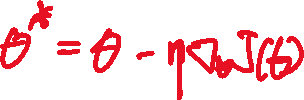 θ* = θ - η∇θJ(θ)